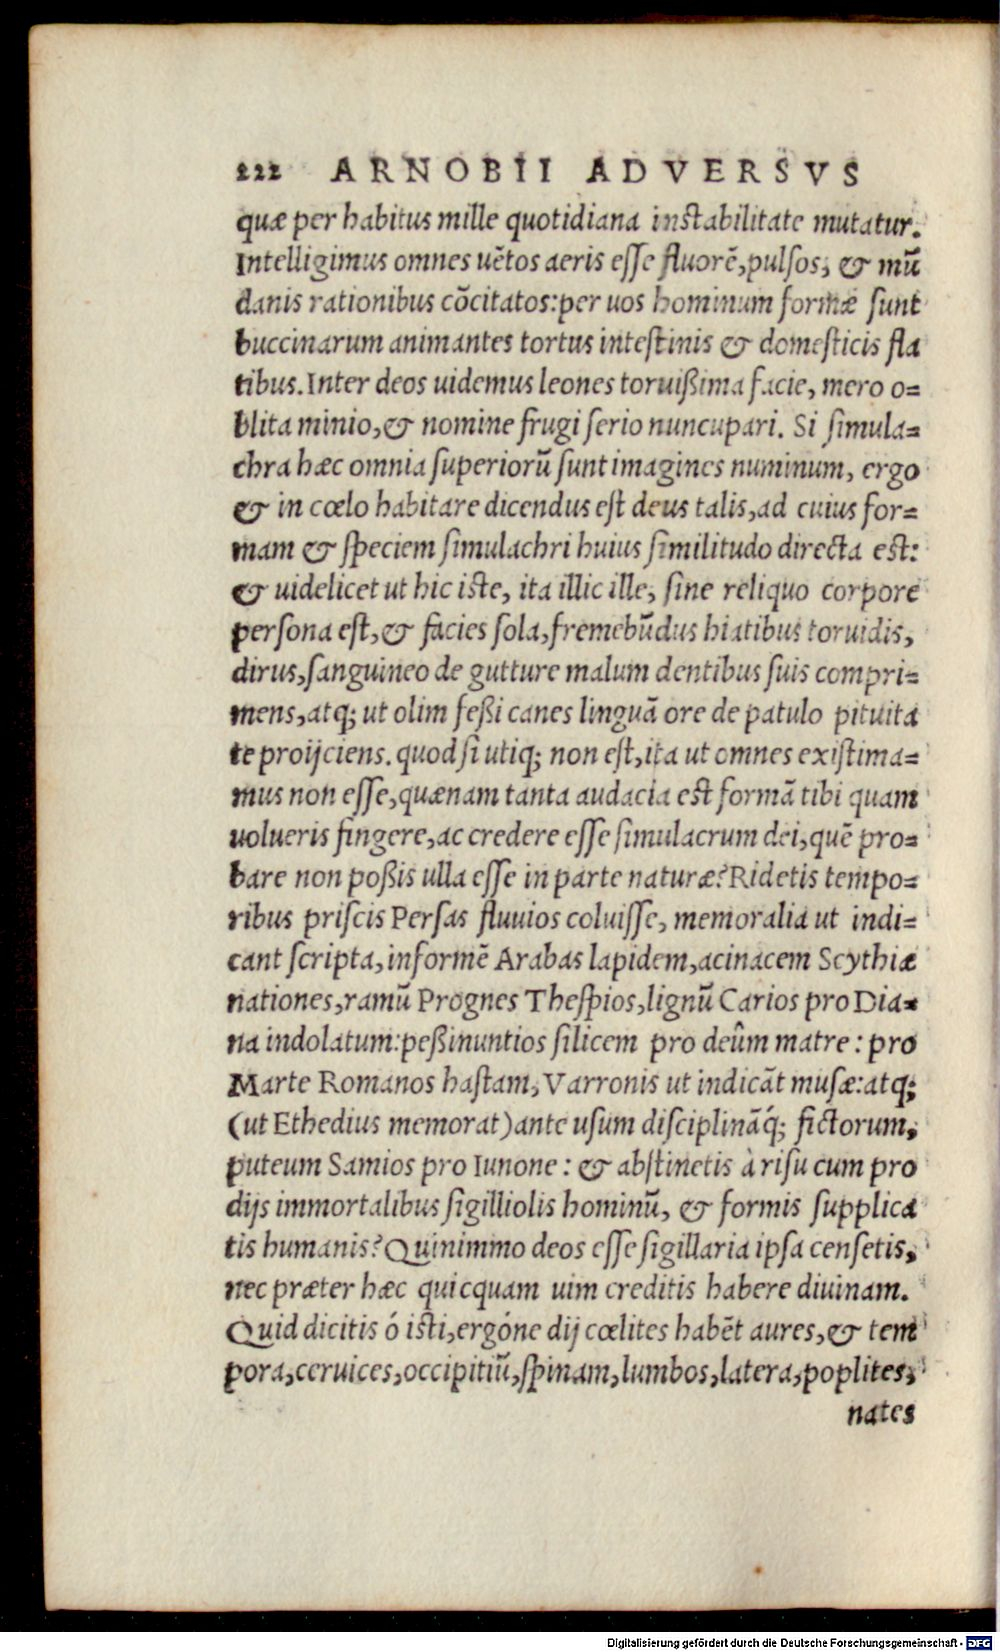 222 ARNOBII ADVERSVS
quæ per habitus mille quotidiana instabilitate mutatur.
Intelligimus omnes uẽtos aeris esse fluorẽ, pulsos, & mũ
danis rationibus cõcitatos: per uos hominum formæ sunt
buccinarum animantes tortus intestinis & domesticis fla
tibus. Inter deos uidemus leones toruißima facie, mero o=
blita minio, & nomine frugi serio nuncupari. Si simula=
chra hæc omnia superiorũ sunt imagines numinum, ergo
& in cœlo habitare dicendus est deus talis, ad cuius for=
mam & speciem simulachri huius similitudo directa est:
& uidelicet ut hic iste, ita illic ille, sine reliquo corpore
persona est, & facies sola, fremebũdus hiatibus toruidis,
dirus, sanguineo de gutture malum dentibus suis compri=
mens, atq; ut olim feßi canes linguã ore de patulo pituita
te proijciens. quod si utiq; non est, ita ut omnes existima=
mus non esse, quænam tanta audacia est formã tibi quam
uolueris fingere, ac credere esse simulacrum dei, quẽ pro=
bare non poßis ulla esse in parte naturæ? Ridetis tempo=
ribus priscis Persas fluuios coluisse, memoralia ut indi=
cant scripta, informẽ Arabas lapidem, acinacem Scythiæ
nationes, ramũ Prognes Thespios, lignũ Carios pro Dia=
na indolatum: peßinuntios silicem pro deûm matre: pro
Marte Romanos hastam, Varronis ut indicãt musæ: atq;
(ut Ethedius memorat) ante usum disciplinãq́; fictorum,
puteum Samios pro Iunone: & abstinetis à risu cum pro
dijs immortalibus sigilliolis hominũ, & formis supplica
tis humanis? Quinimmo deos esse sigillaria ipsa censetis,
nec præter hæc quicquam uim creditis habere diuinam.
Quid dicitis ó isti, ergóne dij cœlites habẽt aures, & tem
pora, ceruices, occipitiũ, spinam, lumbos, latera, poplites,
nates
Digitalisierung gefördert durch die Deutsche Forschungsgemeinschaft - DFG